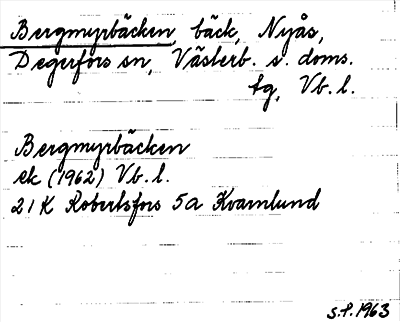 Bergmyrbäcken, bäck, Nyås,
Degerfors sn, Västerb. s. doms.
tg, Vb. l.
Bergmyrbäcken
ek (1962) Vb. l.
21K Robertsfors 5a Kvarnlund
s.f. 1963